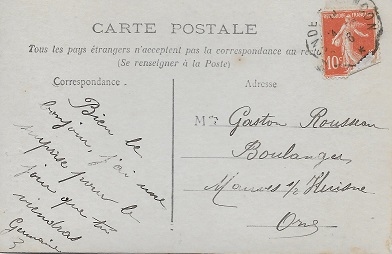 CARTE POSTALE
Tous les pays étrangers n'acceptent pas la correspondance au
(Se renseigner à la Poste)
Correspondance.
Adresse
Bien le
bonjour, j'ai une
surprise pour le
jour que tu
viendras
Germaine
Mr Gaston Rousseau
Boulanger
Mauves s/ Huisne
Orne
10